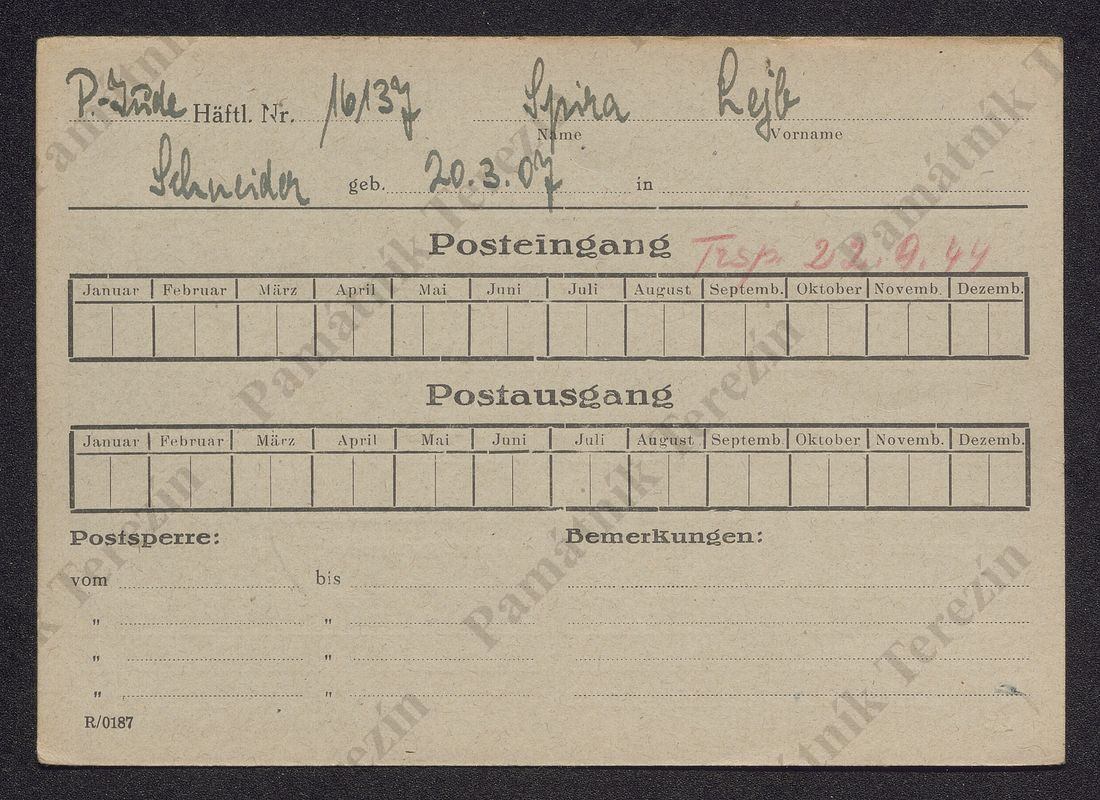 P.-Jude Häftl. Nr. 16137 Spira Lejb
Name Vorname
Schneider geb. 20.3.07 in
Posteingang Trsp. 22.9.44
Januar Februar März April Mai Juni Juli August Septemb. Oktober Novemb. Dezemb.
Postausgang
Januar Februar März April Mai Juni Juli August Septemb. Oktober Novemb. Dezemb.
Postsperre: Bemerkungen:
vom bis
" "
" "
" "
R/0187
Památník Terezín